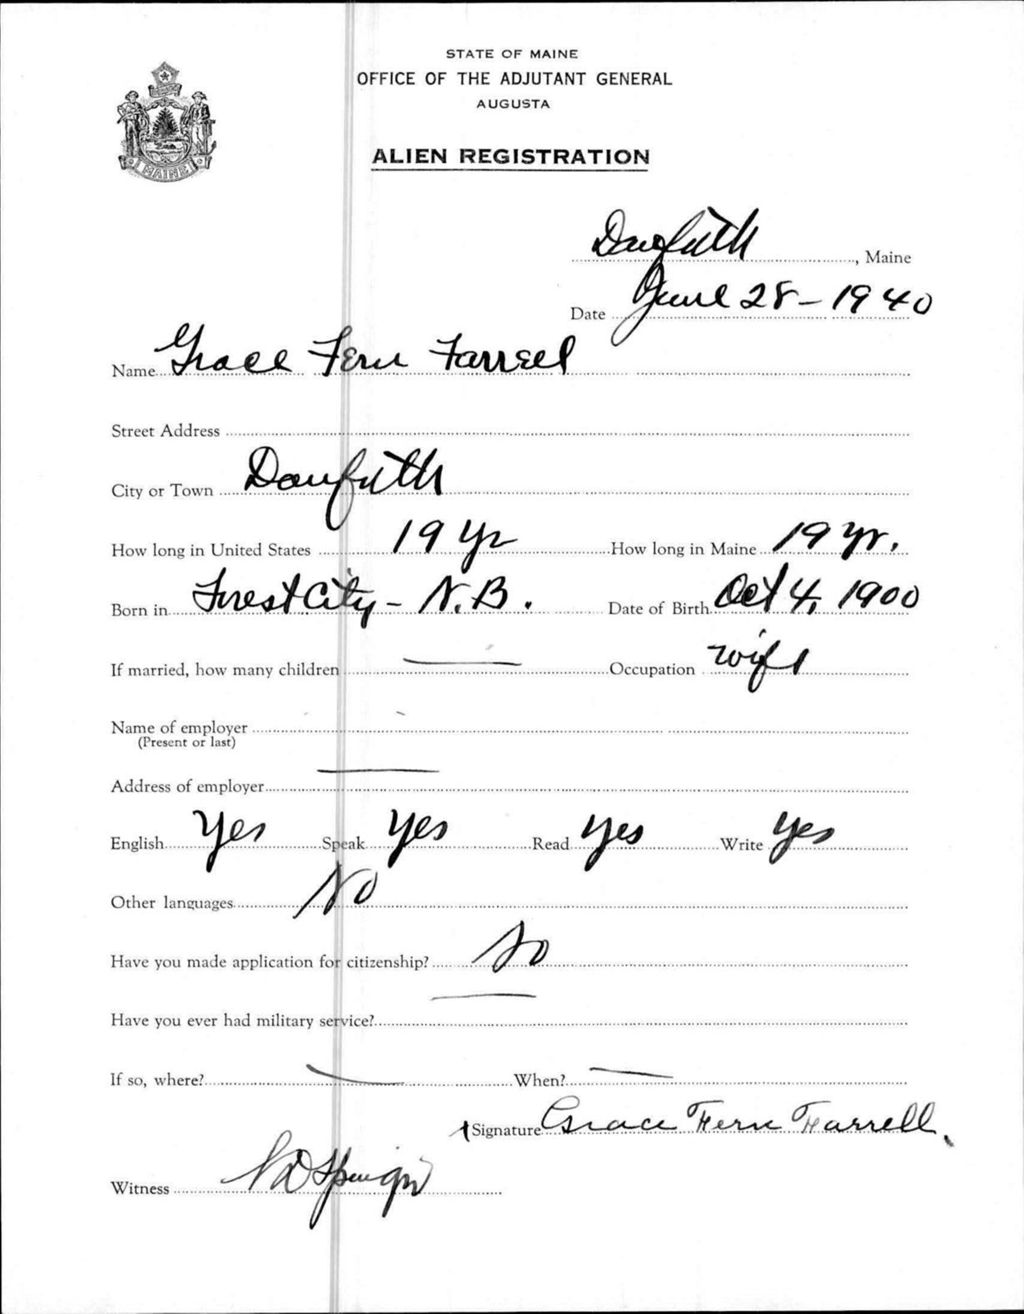 STATE OF MAINE
OFFICE OF THE ADJUTANT GENERAL
AUGUSTA
ALIEN REGISTRATION
MAINE
Danforth, Maine
Date June 28 - 1940
Name Grace Fern Farrell
Street Address
City or Town Danforth
How long in United States 19 yr How long in Maine 19 yr.
Born in Forest City - N.B. Date of Birth Oct 4, 1900
If married, how many children — Occupation wife
Name of employer
(Present or last)
Address of employer —
English Yes Speak yes Read yes Write yes
Other languages No
Have you made application for citizenship? No
Have you ever had military service? —
If so, where? — When? —
Signature Grace Fern Farrell
Witness